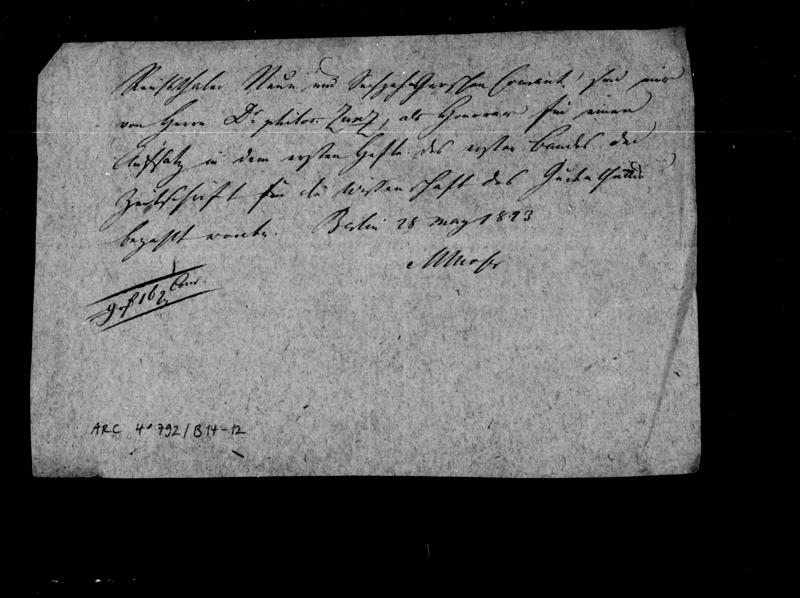 Reichsthaler Neun und Sechzehn Groschen Courant sind mir
von Herrn Dr. philos. Zunz, als Honorar für einen
Aufsatz in dem ersten Hefte des ersten Bandes der
Zeitschrift für die Wissenschaft des Judenthums
bezahlt worden. Berlin 28 May 1823
MMoser
9 rf 16 g Cour.
ARC 4° 792/B14-12